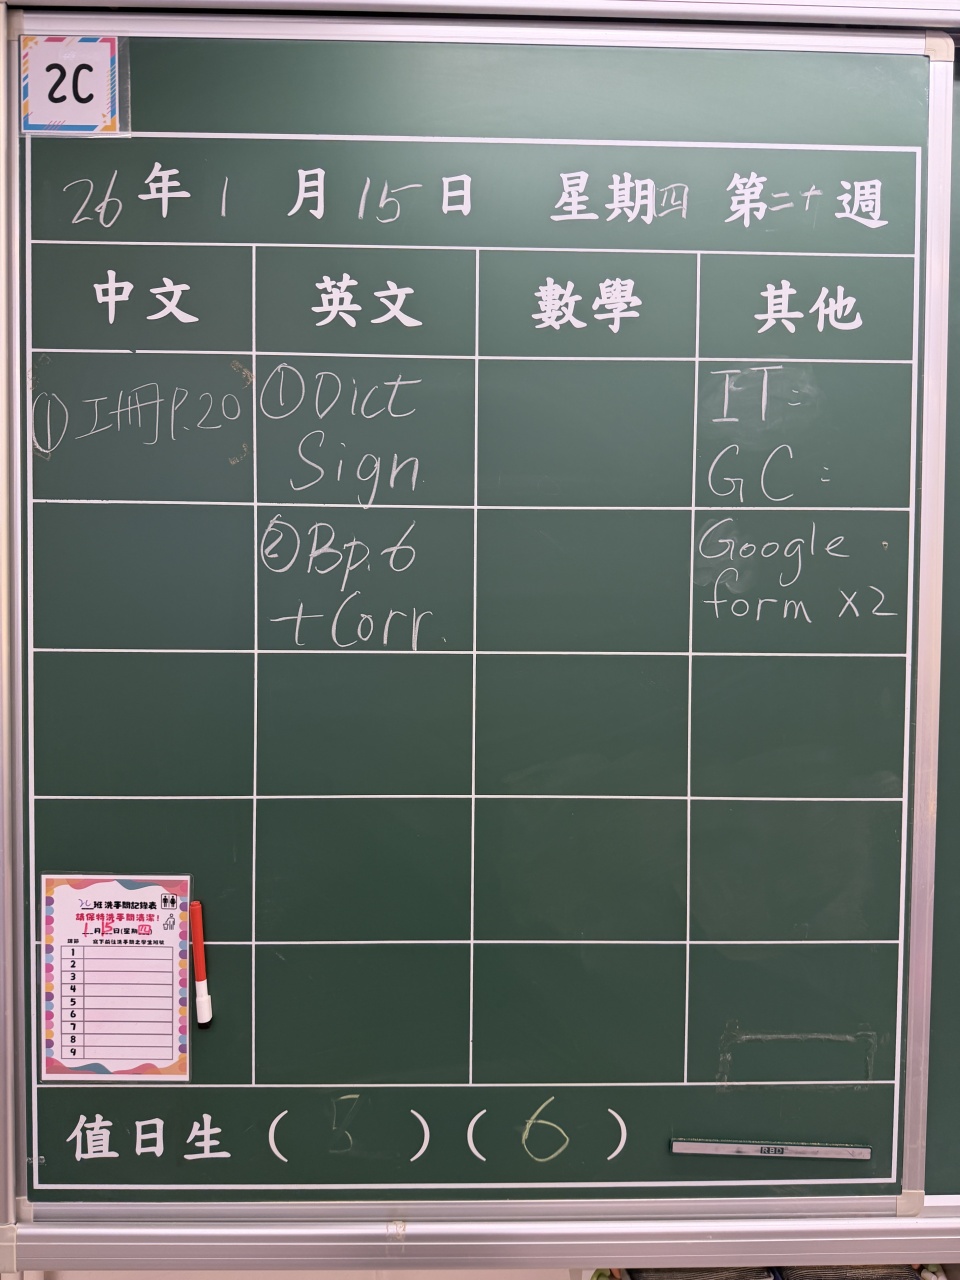 2C
26年1月15日 星期四 第二十週
中文 英文 數學 其他
①工冊P.20
①Dict
Sign
IT:
GC:
②Bp.6
+Corr.
Google
form x2
2C班洗手間記錄表
請保持洗手間清潔!
1月15日(星期四)
課節
1
2
3
4
5
6
7
8
9
值日生 ( 3 ) ( 6 )
RBD